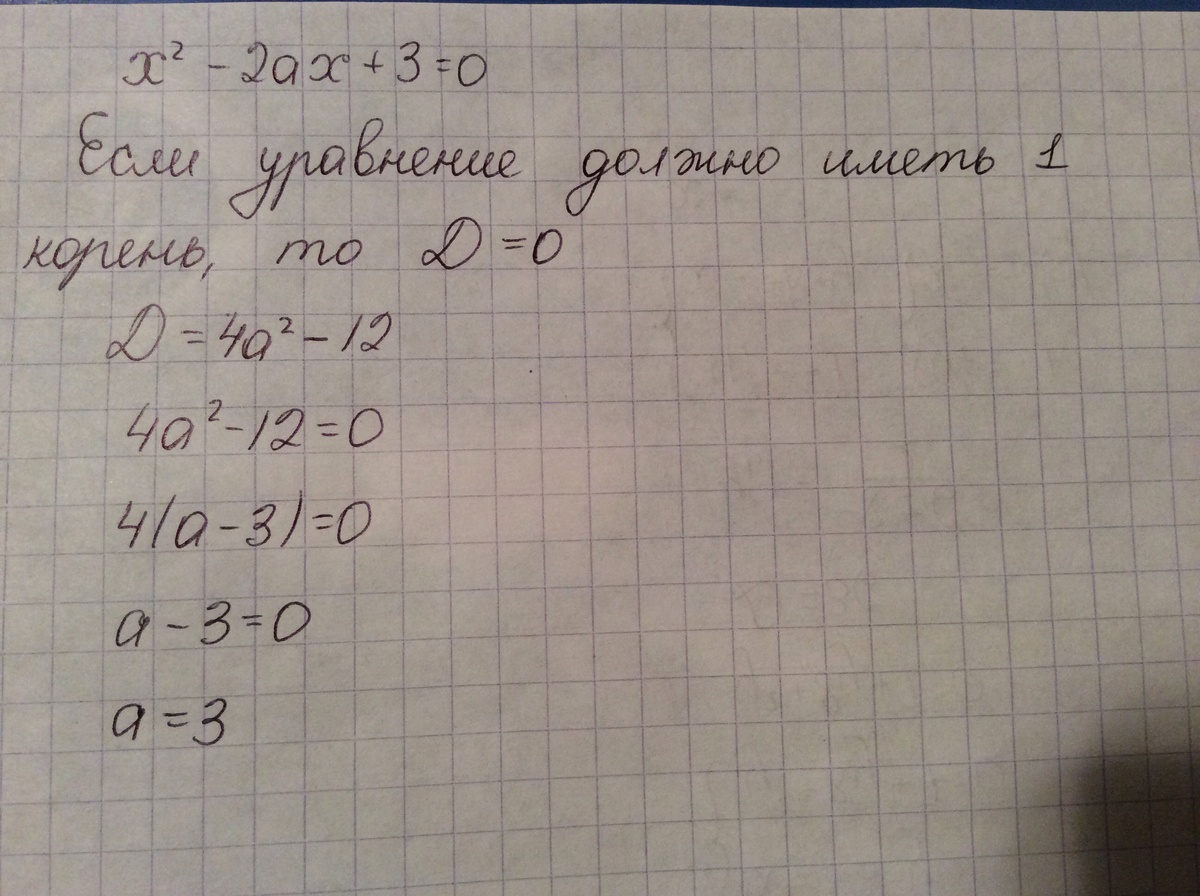 x² - 2ax + 3 = 0
Если уравнение должно иметь 1
корень, то D = 0
D = 4a² - 12
4a² - 12 = 0
4(a - 3) = 0
a - 3 = 0
a = 3